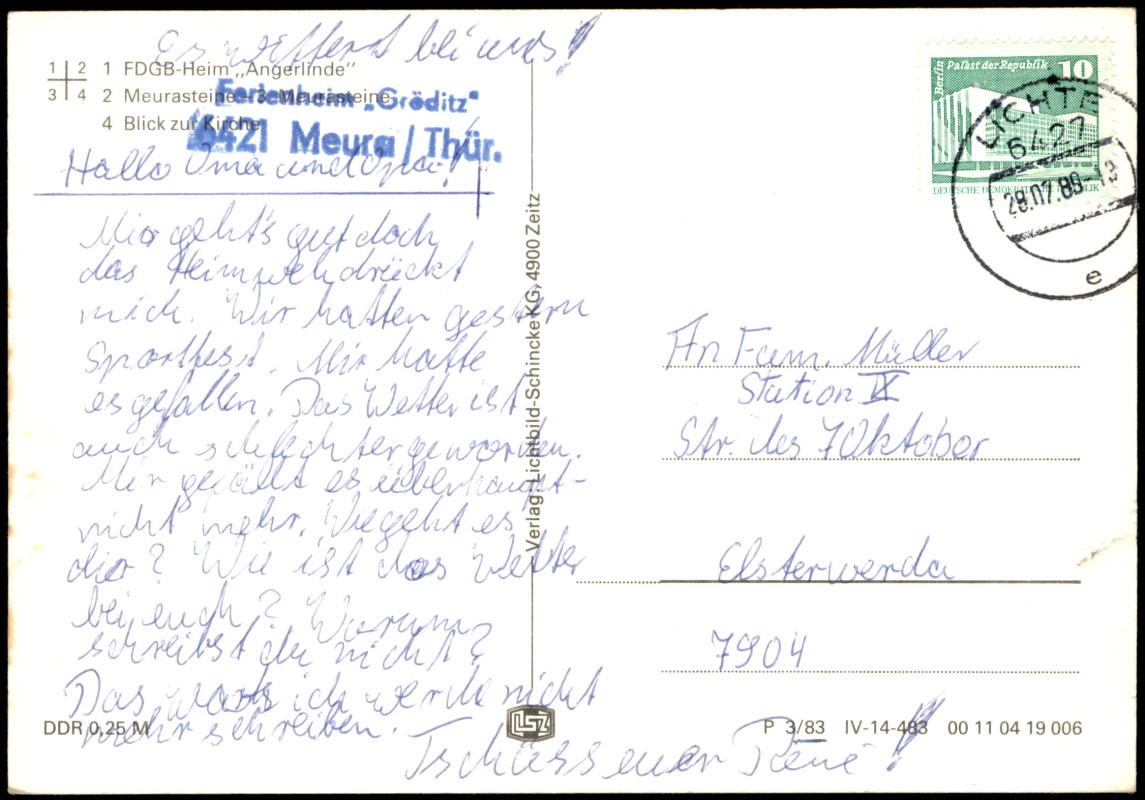 Es wettert bei uns!
1 2 1 FDGB-Heim „Angerlinde"
3 4 2 Meurasteine 3 Meurasteine
4 Blick zur Kirche
Ferienheim „Gröditz"
6421 Meura/Thür.
Hallo Oma und Opa!
Mir geht's gut doch
das Heimweh drückt
mich. Wir hatten gestern
Sportfest. Mir hatte
es gefallen. Das Wetter ist
auch schlechter geworden.
Mir gefällt es überhaupt-
nicht mehr. Wie geht es
dir? Wie ist das Wetter
bei euch? Warum
schreibst du nicht?
Das wars ich werde nicht
mehr schreiben.
Tschüss euer René!
DDR 0,25 M
Verlag: Lichtbild-Schincke KG, 4900 Zeitz
LSZ
Berlin Palast der Republik 10
DEUTSCHE DEMOKRATISCHE REPUBLIK
LICHTE
6427
28.07.89-13
e
An Fam. Müller
Station IX
Str. des 7 Oktober
Elsterwerda
7904
P 3/83 IV-14-483 00 11 04 19 006